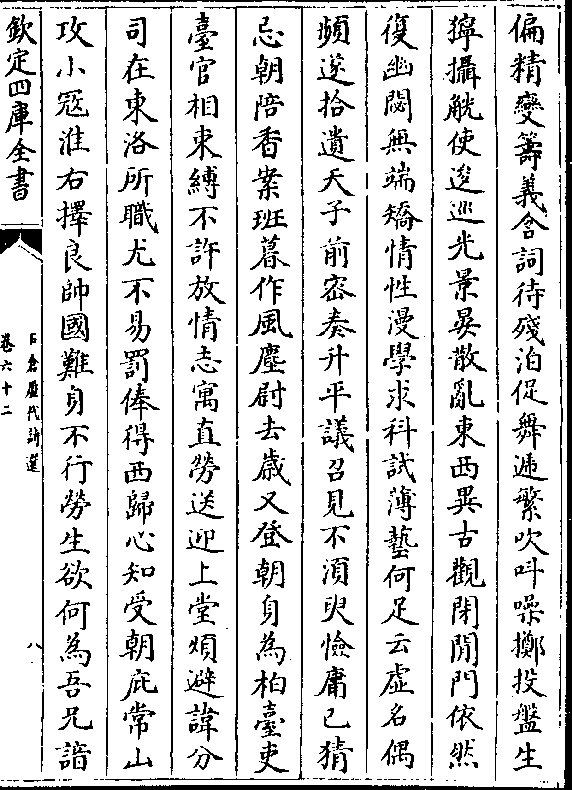 偏精變籌義含詞待殘泊促舞遞繁吹呌噪擲投盤生
獰攝觥使逡巡光景晏散亂東西異古觀閉閒門依然
復幽閟無端矯情性漫學求科試薄藝何足云虛名偶
頻遂拾遺天子前密奏升平議召見不須臾憸庸已猜
忌朝陪香案班暮作風塵尉去歳又登朝身為柏臺吏
臺官相束縛不許放情志寓直勞送迎上堂煩避諱分
司在東洛所職尤不易罰俸得西歸心知受朝庇常山
攻小冦淮右擇良帥國難身不行勞生欲何為吾兄諳
欽定四庫全書
石倉歴代詩選
卷六十二
八